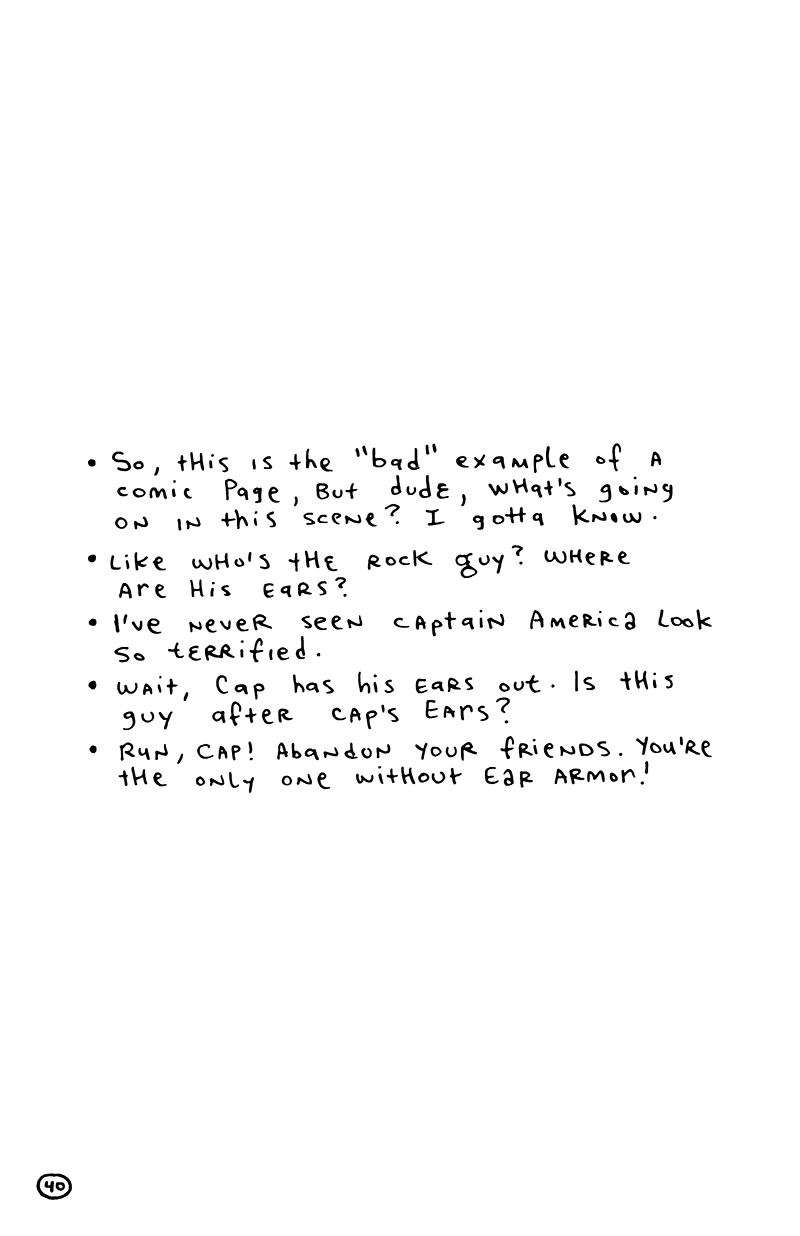 • So, tHis is the "bad" example of A
comic Page, But dude, wHat's going
on in this scene? I gotta know.
• Like wHo's tHE Rock guy? wHeRe
Are His EaRS?
• I've neveR seen cAptain AmeRica Look
so tERRified.
• wAit, Cap has his EaRS out. Is tHis
guy afteR cAp's EArs?
• Run, CAP! Abandon YouR fRiends. You're
tHe only one witHout EaR ARmor!
40